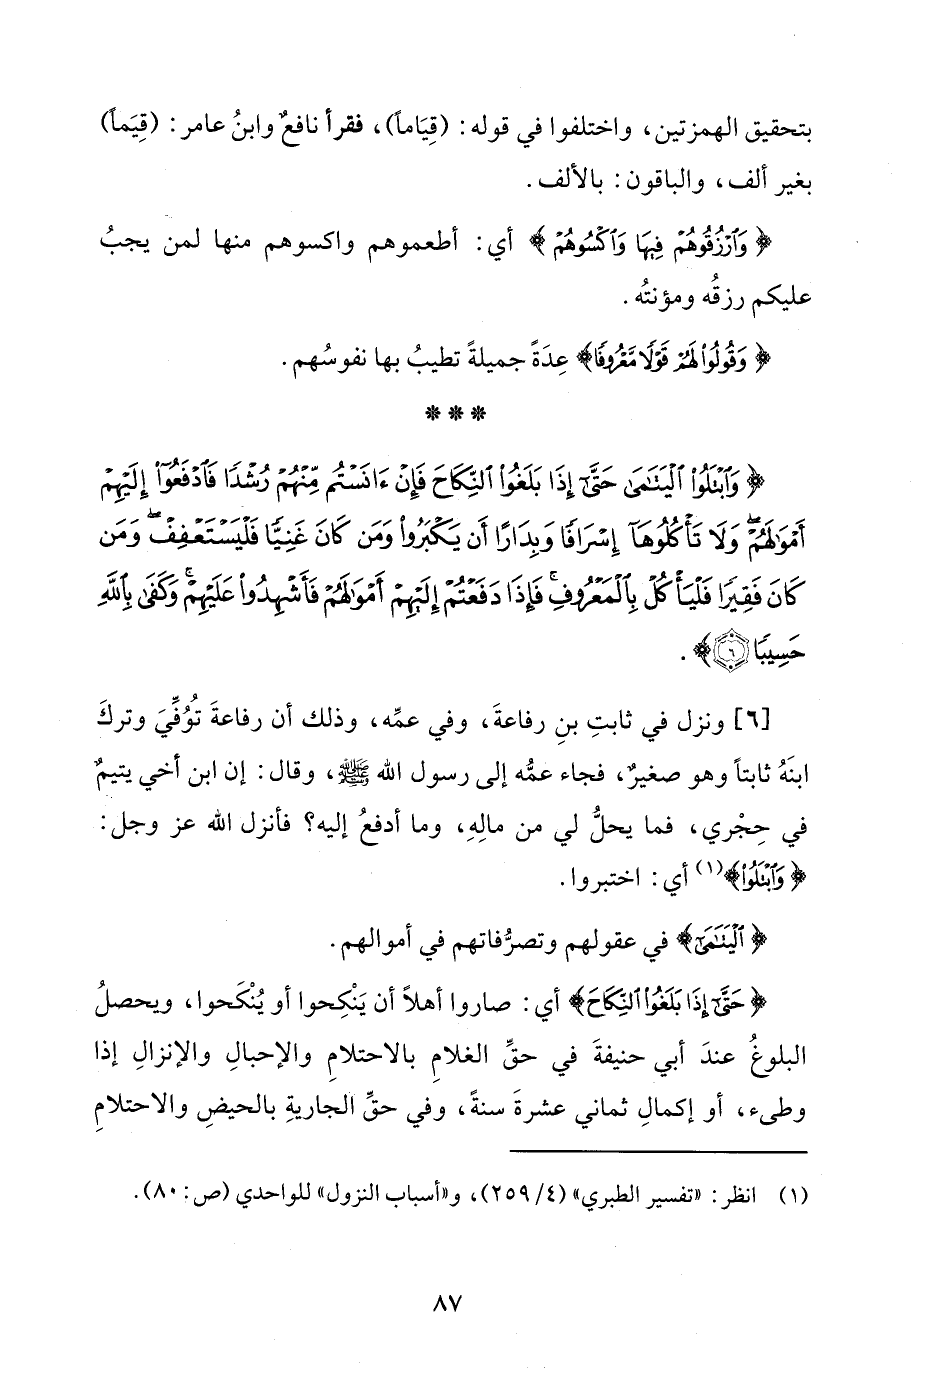 بتحقيق الهمزتين، واختلفوا في قوله: (قِيَاماً)، فقرأ نافعٌ وابنُ عامر: (قِيَماً)
بغير ألف، والباقون: بالألف.
﴿ وَٱرْزُقُوهُمْ فِيهَا وَٱكْسُوهُمْ ﴾ أي: أطعموهم واكسوهم منها لمن يجبُ
عليكم رزقُه ومؤنتُه.
﴿ وَقُولُوا۟ لَهُمْ قَوْلًا مَّعْرُوفًا﴾ عِدَةً جميلةً تطيبُ بها نفوسُهم.
***
﴿ وَٱبْتَلُوا۟ ٱلْيَتَـٰمَىٰ حَتَّىٰٓ إِذَا بَلَغُوا۟ ٱلنِّكَاحَ فَإِنْ ءَانَسْتُم مِّنْهُمْ رُشْدًا فَٱدْفَعُوٓا۟ إِلَيْهِمْ
أَمْوَٰلَهُمْ ۖ وَلَا تَأْكُلُوهَآ إِسْرَافًا وَبِدَارًا أَن يَكْبَرُوا۟ وَمَن كَانَ غَنِيًّا فَلْيَسْتَعْفِفْ ۖ وَمَن
كَانَ فَقِيرًا فَلْيَأْكُلْ بِٱلْمَعْرُوفِ ۚ فَإِذَا دَفَعْتُمْ إِلَيْهِمْ أَمْوَٰلَهُمْ فَأَشْهِدُوا۟ عَلَيْهِمْ ۚ وَكَفَىٰ بِٱللَّهِ
حَسِيبًا ٦﴾.
[٦] ونزل في ثابتِ بنِ رفاعةَ، وفي عمِّه، وذلك أن رفاعةَ تُوُفِّيَ وتركَ
ابنَهُ ثابتاً وهو صغيرٌ، فجاء عمُّه إلى رسول الله ﷺ، وقال: إن ابن أخي يتيمٌ
في حِجْري، فما يحلُّ لي من مالِهِ، وما أدفعُ إليه؟ فأنزل الله عز وجل:
﴿ وَٱبْتَلُوا۟﴾(١) أي: اختبروا.
﴿ ٱلْيَتَـٰمَىٰ﴾ في عقولهم وتصرُّفاتهم في أموالهم.
﴿ حَتَّىٰٓ إِذَا بَلَغُوا۟ ٱلنِّكَاحَ﴾ أي: صاروا أهلاً أن يَنْكِحوا أو يُنْكَحوا، ويحصلُ
البلوغُ عندَ أبي حنيفةَ في حقِّ الغلامِ بالاحتلامِ والإحبالِ والإنزالِ إذا
وطىء، أو إكمالِ ثماني عشرةَ سنةً، وفي حقِّ الجاريةِ بالحيضِ والاحتلامِ
(١) انظر: «تفسير الطبري» (٤/ ٢٥٩)، و«أسباب النزول» للواحدي (ص: ٨٠).
٨٧